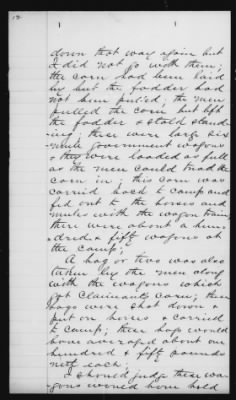 12
1 1
down that way again but
I did not go with them;
the corn had been laid
by but the fodder had
not been pulled; the men
pulled the corn but left
the fodder & stalk stand-
ing; these were large six
mule government wagons
& they were loaded as full
as the men could tread the
corn in; this corn was
carried back to camp and
fed out to the horses and
mules with the wagon train;
there were about a hun-
dred & fifty wagons at
the camp;
A hog or two was also
taken by the men along
with the wagons which
got Claimants corn; these
hogs were shot down &
put on horses & carried
to camp; these hogs would
have averaged about one
hundred & fifty pounds
nett each;
I should judge these wa-
gons would have held